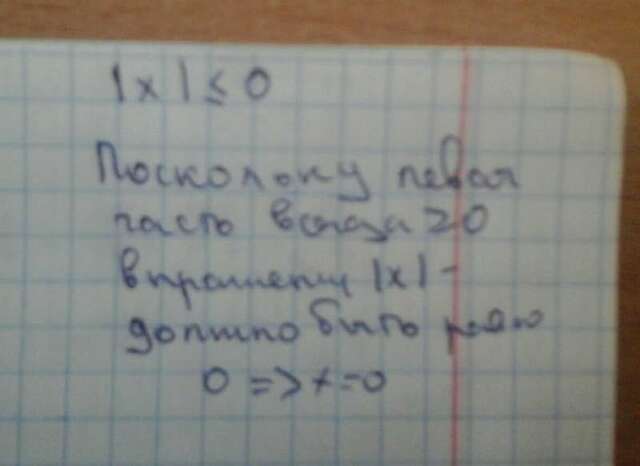 |x| ≤ 0
Поскольку левая
часть всегда ≥0
|x| -
должно быть равно
0 => x=0